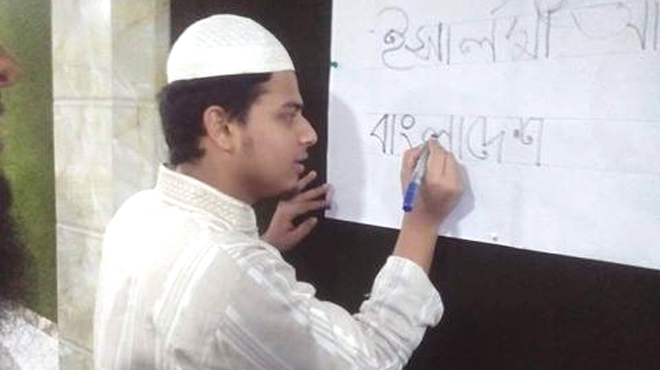 ইসলামী আ
বাংলাদেশ